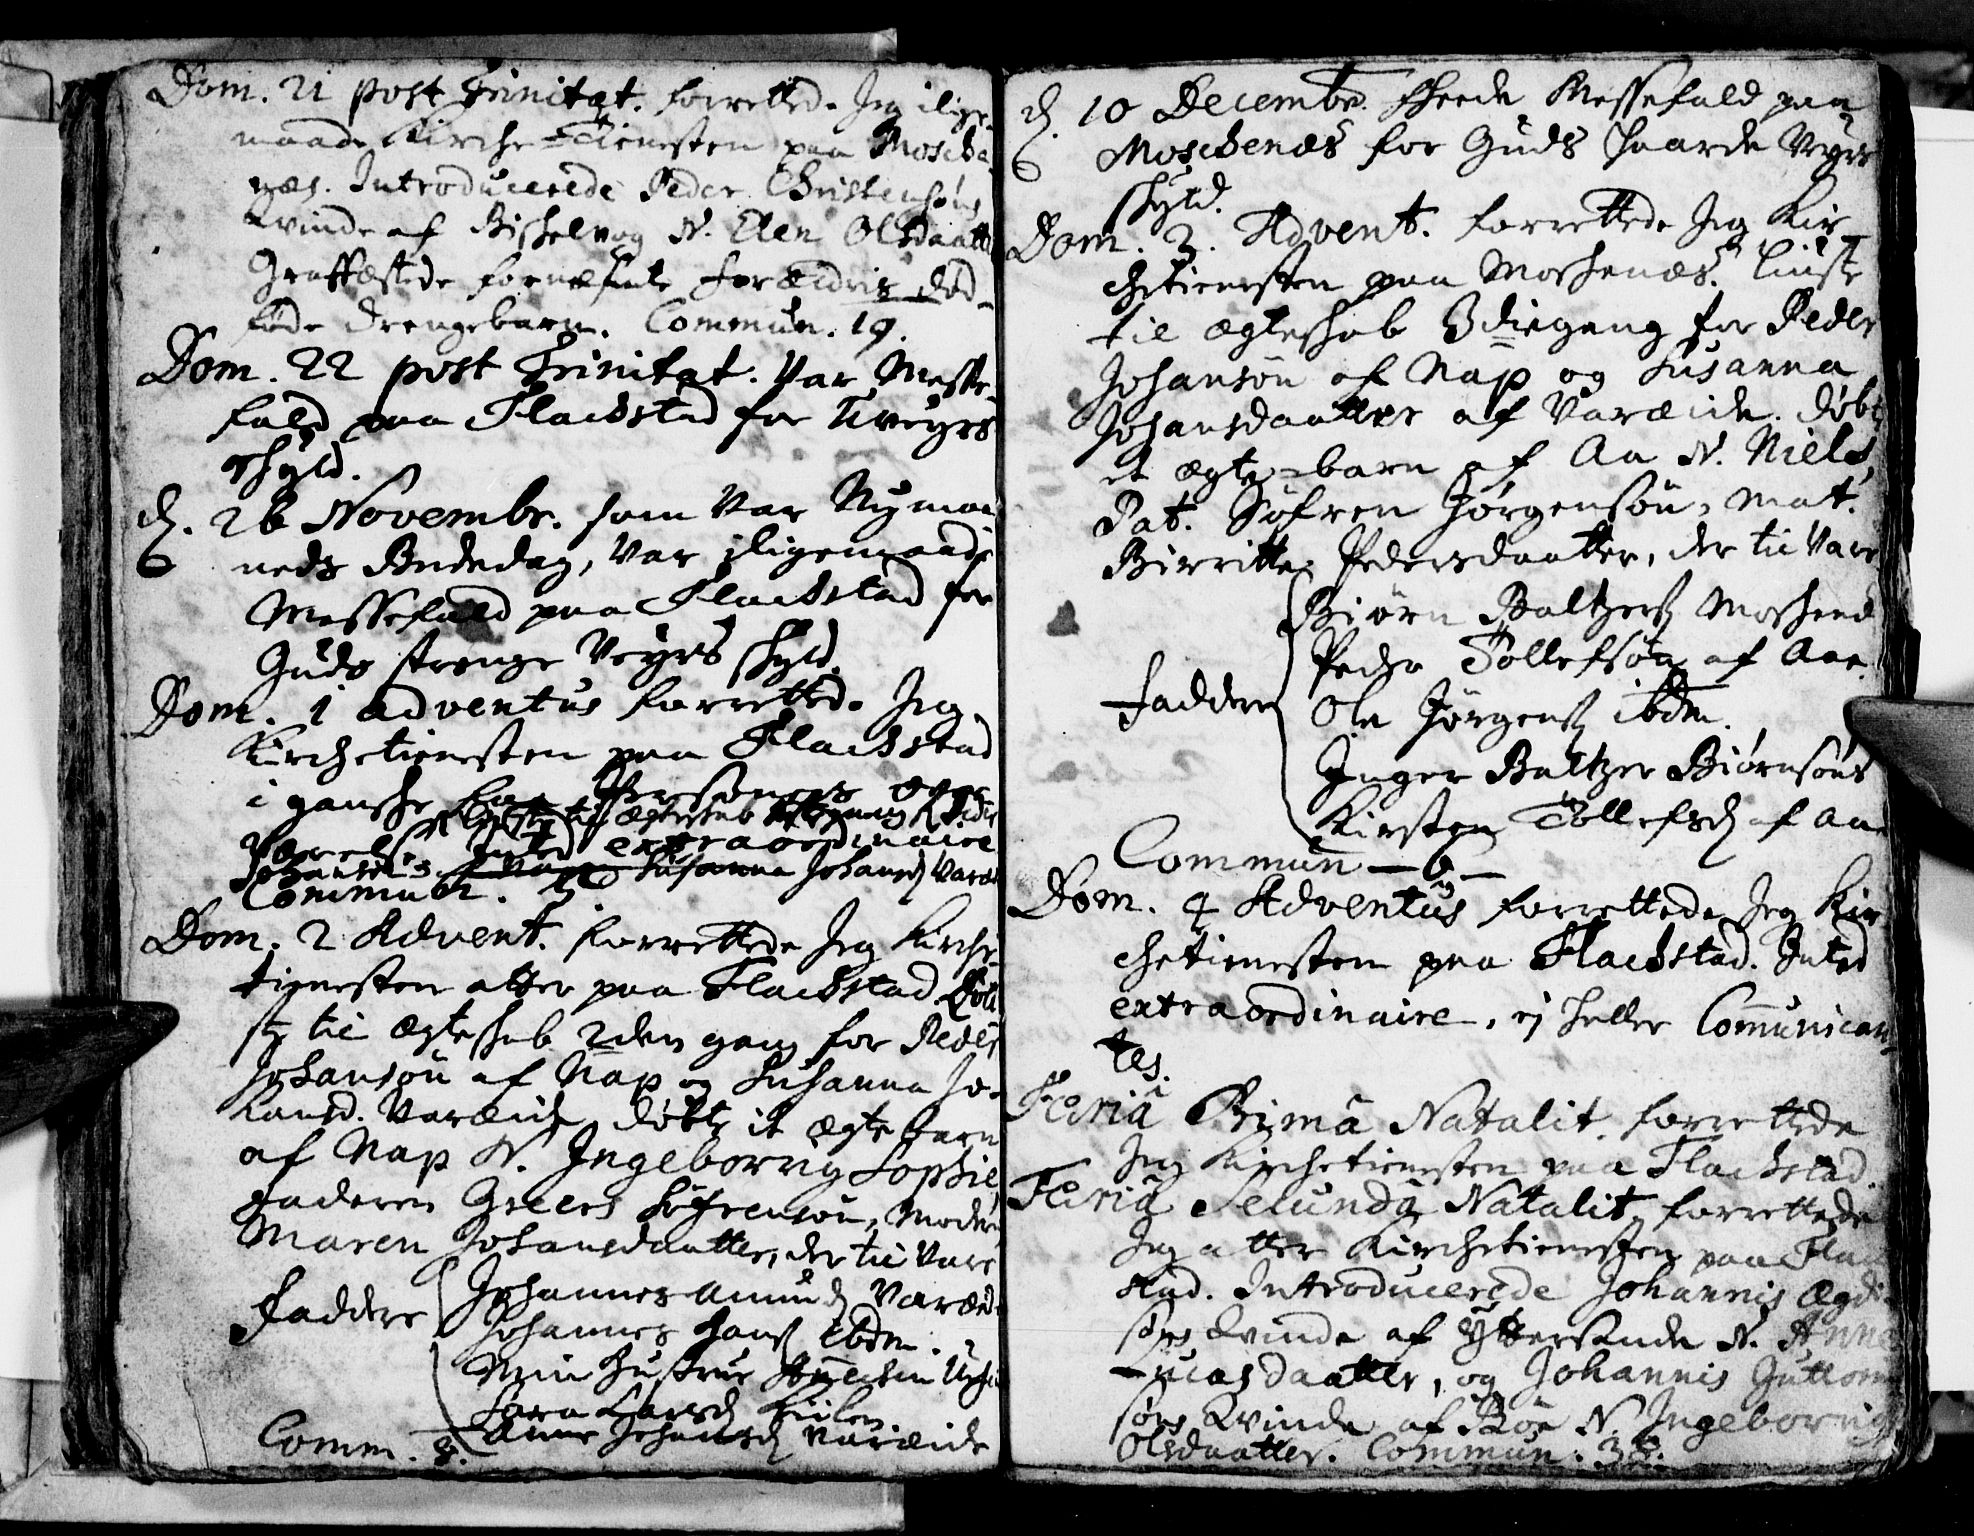 Dom. 21 post Trinitat. forretted. Jeg ilige-
maade Kirche-Tienesten paa Moscke-
næs. Introducerede Peder Christensøns
Kvinde af Bisselvog N. Elen Olsdaatte
Graffæstede fornefnte forældris død-
føde drengebarn. Commun. 19.
Dom. 22 post Trinitat. Var Messe-
fald paa Flackstad for Uveyrs
skyld.
d. 26 Novembr. som Var Nymaa-
neds Bededag, Var iligemaade
Messefald paa Flackstad for
Guds strenge Veyrs skyld.
Dom. 1 adventus forretted. Jeg
Kirchetienesten paa Flackstad
i gansche faa Personers
til ægteskab Peder
Værelse. Intet extraordinaire
Johansøn Susanna Johansd Varæ
Commun.
Dom. 2 Advent. forrettede Jeg Kirche-
tienesten atter paa Flackstad
til Ægteskab 2den gang for Peder
Johansøn af Nap og Susanna Jo-
hansd. Varæide, døbte it ægte barn
af Nap N. Ingeborrig Sophie
faderen Greers Søfrensøn, Moder
Maren Johansdaatter, der til Vare
Johannes Amund Varæid
Faddere Johannes Hans ibdm.
Min Hustrue
Sara Larsd Kiilen
Comm. 8. Anne Johansd Varæide
d. 10 Decembr. skeede Messefald paa
Moschenæs for Guds haarde Veyrs
skyld.
Dom. 3. Advent. forrettede Jeg Kir-
chetienesten paa Moschenæs. liuste
til ægteskab 3die gang for Peder
Johansøn af Nap og Susanna
Johansdaatter af Varæide. døbt
et ægte-barn af Aa N. Niels,
Pat. Søfren Jørgensøn, Mat.
Birritte Pedersdaatter, der til Vare
Biørn Baltzers Moschend
Peder Tollefsøn af Aae.
Faddere Ole Jørgens ibdm.
Inger Baltzer Biørnsøns
Kirsten Tollefsd af Aa
Commun — 6 —
Dom. 4 Adventus forrettede Jeg Kir
chetienesten paa Flackstad. Inted
extraordinaire, ej heller Communican-
tes.
Feriâ Primâ Natalit. forrettede
Jeg Kirchetienesten paa Flackstad.
Feriâ Secundâ Natalit. forrettede
Jeg atter Kirchetienesten paa Flac
stad. Introducerede Johannis Ægdi-
søns Kvinde af Yttersande N. Anne
Lucasdaatter, og Johannis Guttorm
søns Kvinde af Bøe N. Ingeborrig
Olsdaatter. Commun. 38.